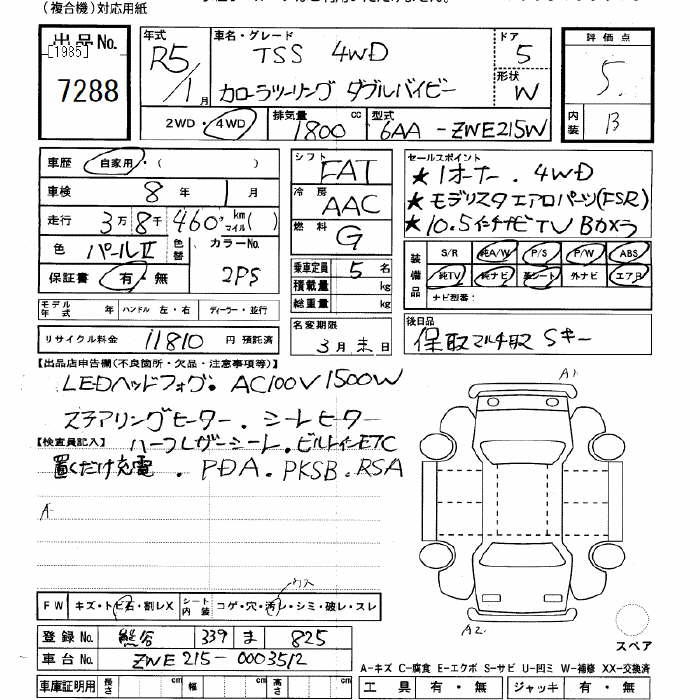 (複合機)対応用紙
出品No.
[1985]
7288
年式 R5/1月
車名・グレード TSS 4WD
カローラツーリング ダブルバイビー
ドア 5
形状 W
評価点 5
内装 B
2WD・4WD
排気量 1800 cc
型式 6AA-ZWE215W
車歴 自家用・( )
車検 8年 1月
走行 3万8千460 km マイル( )
色 パールⅡ 色替 カラーNo. 2PS
保証書 有・無
モデル年式 年 ハンドル 左・右 ディーラー・並行
リサイクル料金 11810 円 預託済
シフト FAT
冷房 AAC
燃料 G
乗車定員 5 名
積載量 kg
総重量 kg
名変期限 3月末日
セールスポイント
★1オーナー.4WD
★モデリスタエアロパーツ(FSR)
★10.5インチナビTVBカメラ
装備品 S/R 純A/W P/S P/W ABS
純TV 純ナビ 革シート 外ナビ エアB
ナビ型番:
後日品
保取マルチ取 Sキー
【出品店申告欄(不良箇所・欠品・注意事項等)】
LEDヘッドフォグ. AC100V1500W
ステアリングヒーター.シートヒーター
【検査員記入】
ハーフレザーシート.ビルトインETC
置くだけ充電.PDA.PKSB.RSA
A-
A1
A2
スペア
FW キズ・トビ石・割レX シート内装 コゲ・穴・汚レ・シミ・破レ・スレ
登録No. 熊谷 339 ま 825
車台No. ZWE215-0003512
車庫証明用 長さ cm 幅 cm 高さ cm
A-キズ C-腐食 E-エクボ S-サビ U-凹ミ W-補修 XX-交換済
工具 有・無 ジャッキ 有・無